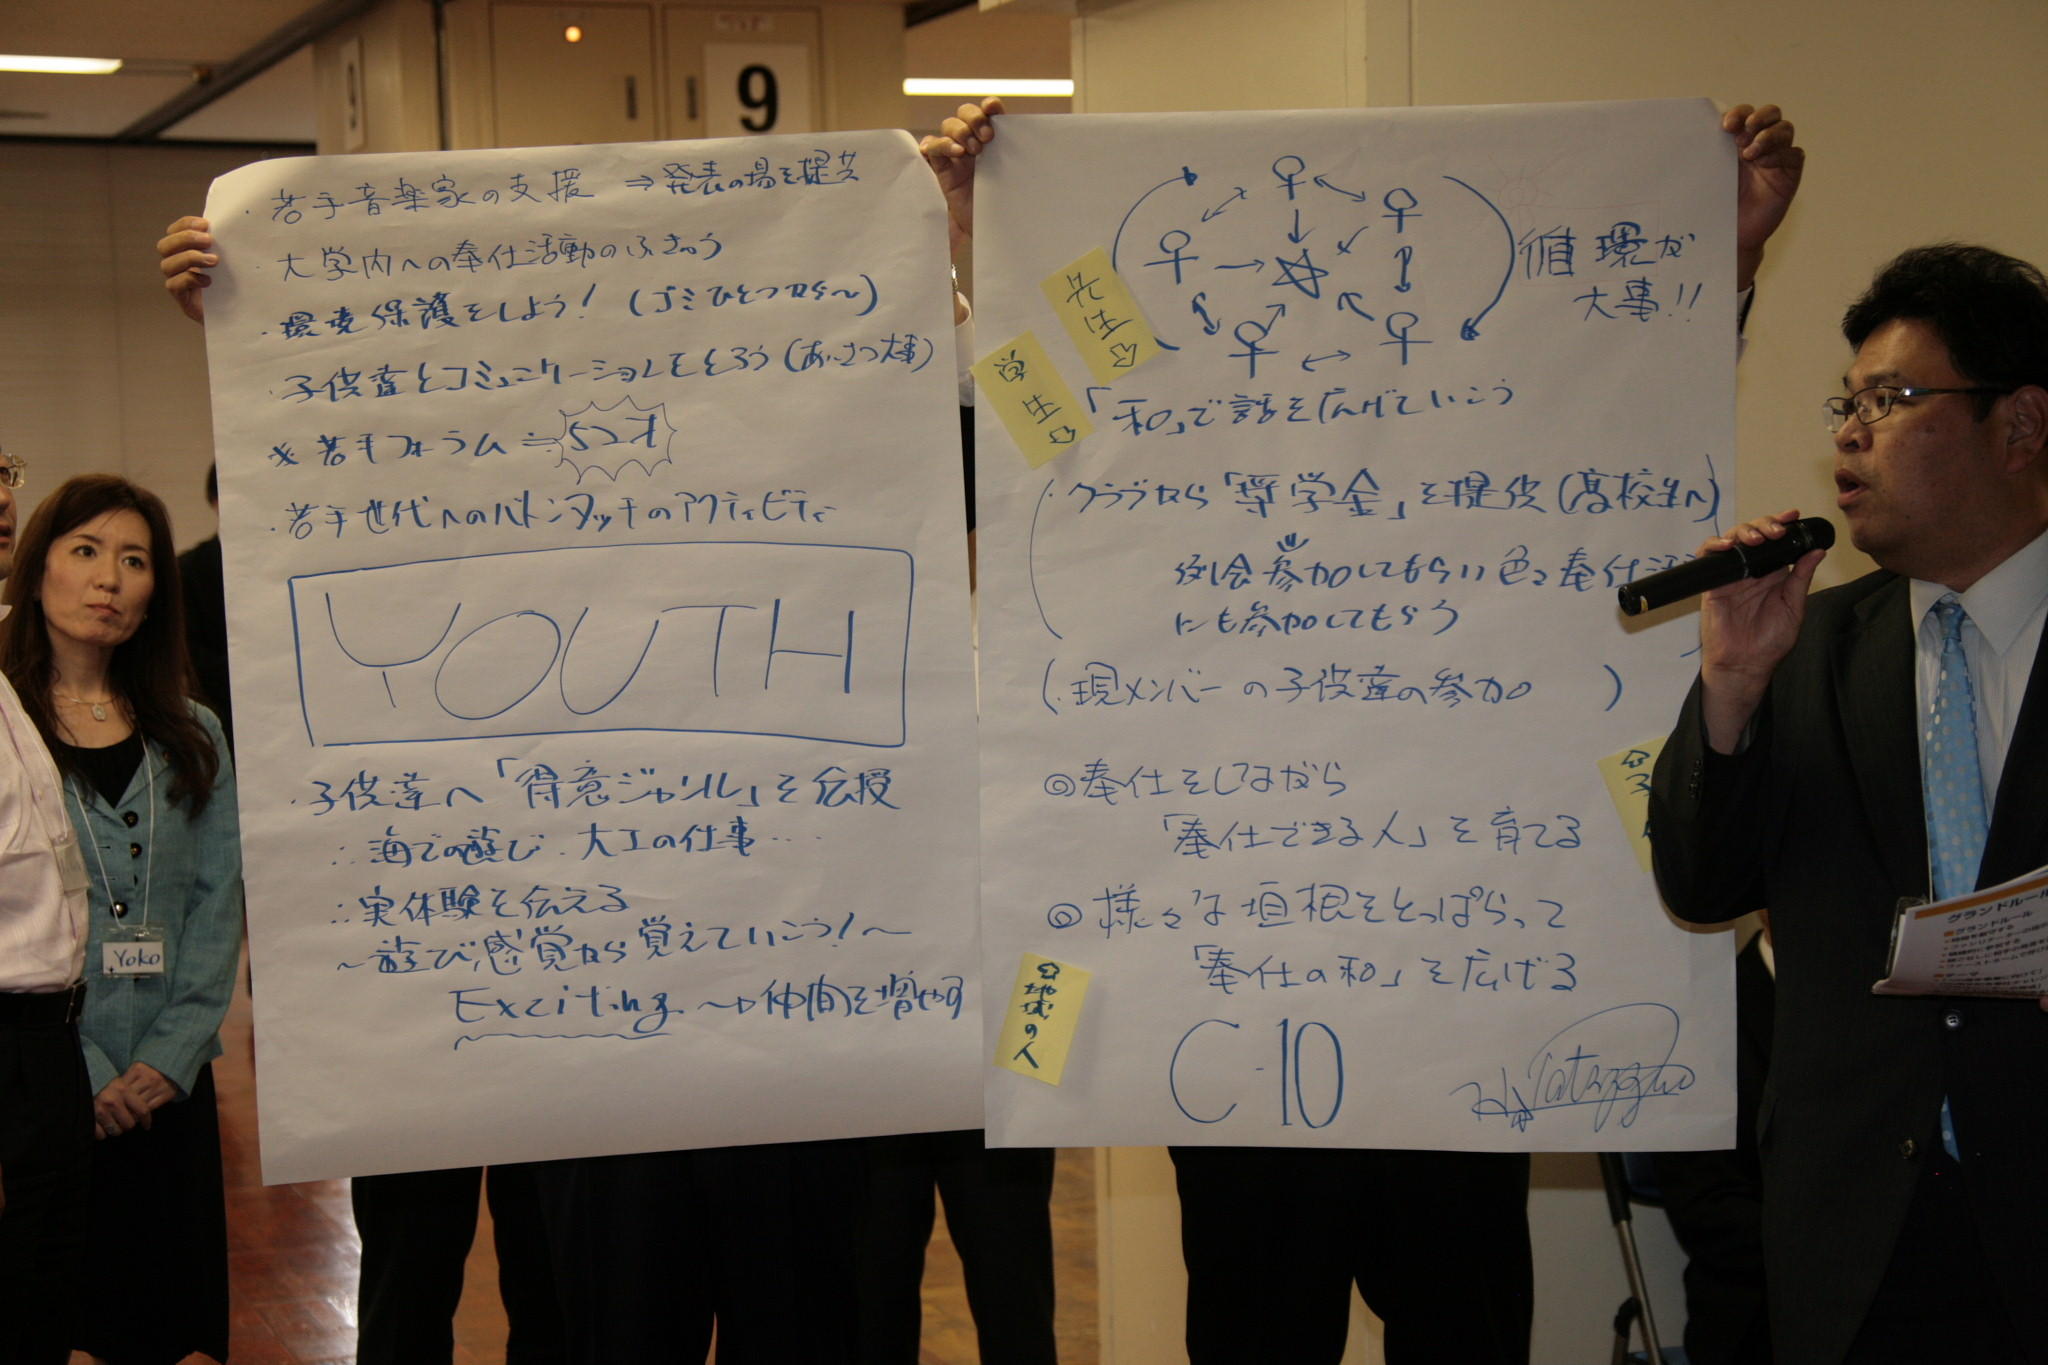 9
・若手音楽家の支援 ⇒発表の場を提供
・大学内への奉仕活動のふきゅう
・環境保護をしよう!(ゴミひとつから〜)
・子供達とコミュニケーションをとろう(あいさつ大事)
※若手フォーラム≒52才
・若手世代へのバトンタッチのアクティビティ
YOUTH
・子供達へ「得意ジャンル」を伝授
∴海での遊び、大工の仕事‥‥
∴実体験を伝える
〜遊び感覚から覚えていこう!〜
Exciting 〜→仲間を増やす
循環が
大事!!
先生
学生
「和」で話を広げていこう
・クラブから「奨学金」を提供(高校生へ)
例会参加してもらい色々奉仕活
にも参加してもらう
(・現メンバーの子供達の参加)
◎奉仕をしながら
「奉仕できる人」を育てる
◎様々な垣根をとっぱらって
「奉仕の和」を広げる
地域の人
C-10
Yoko
グランドルール
グランドルール